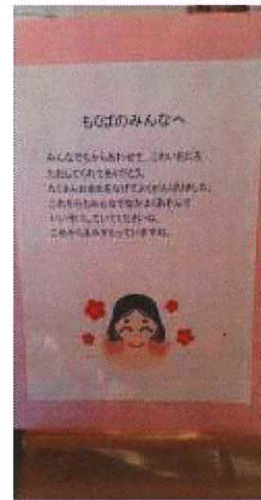 もりばのみんなへ
みんなでちからあわせて、こわいおにを
たおしてくれてありがとう。
たくさんおまめをなげてよくがんばりました。
これからもみんなでなかよくあそんで
いい子にしていてくださいね。
これからもみまもっていますね。